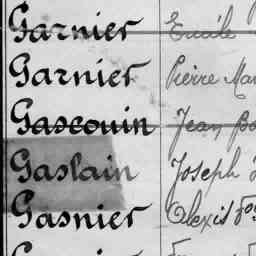 Garnier Emile
Garnier Pierre Mar
Gascouin Jean
Gaslain Joseph
Gasnier Alexis